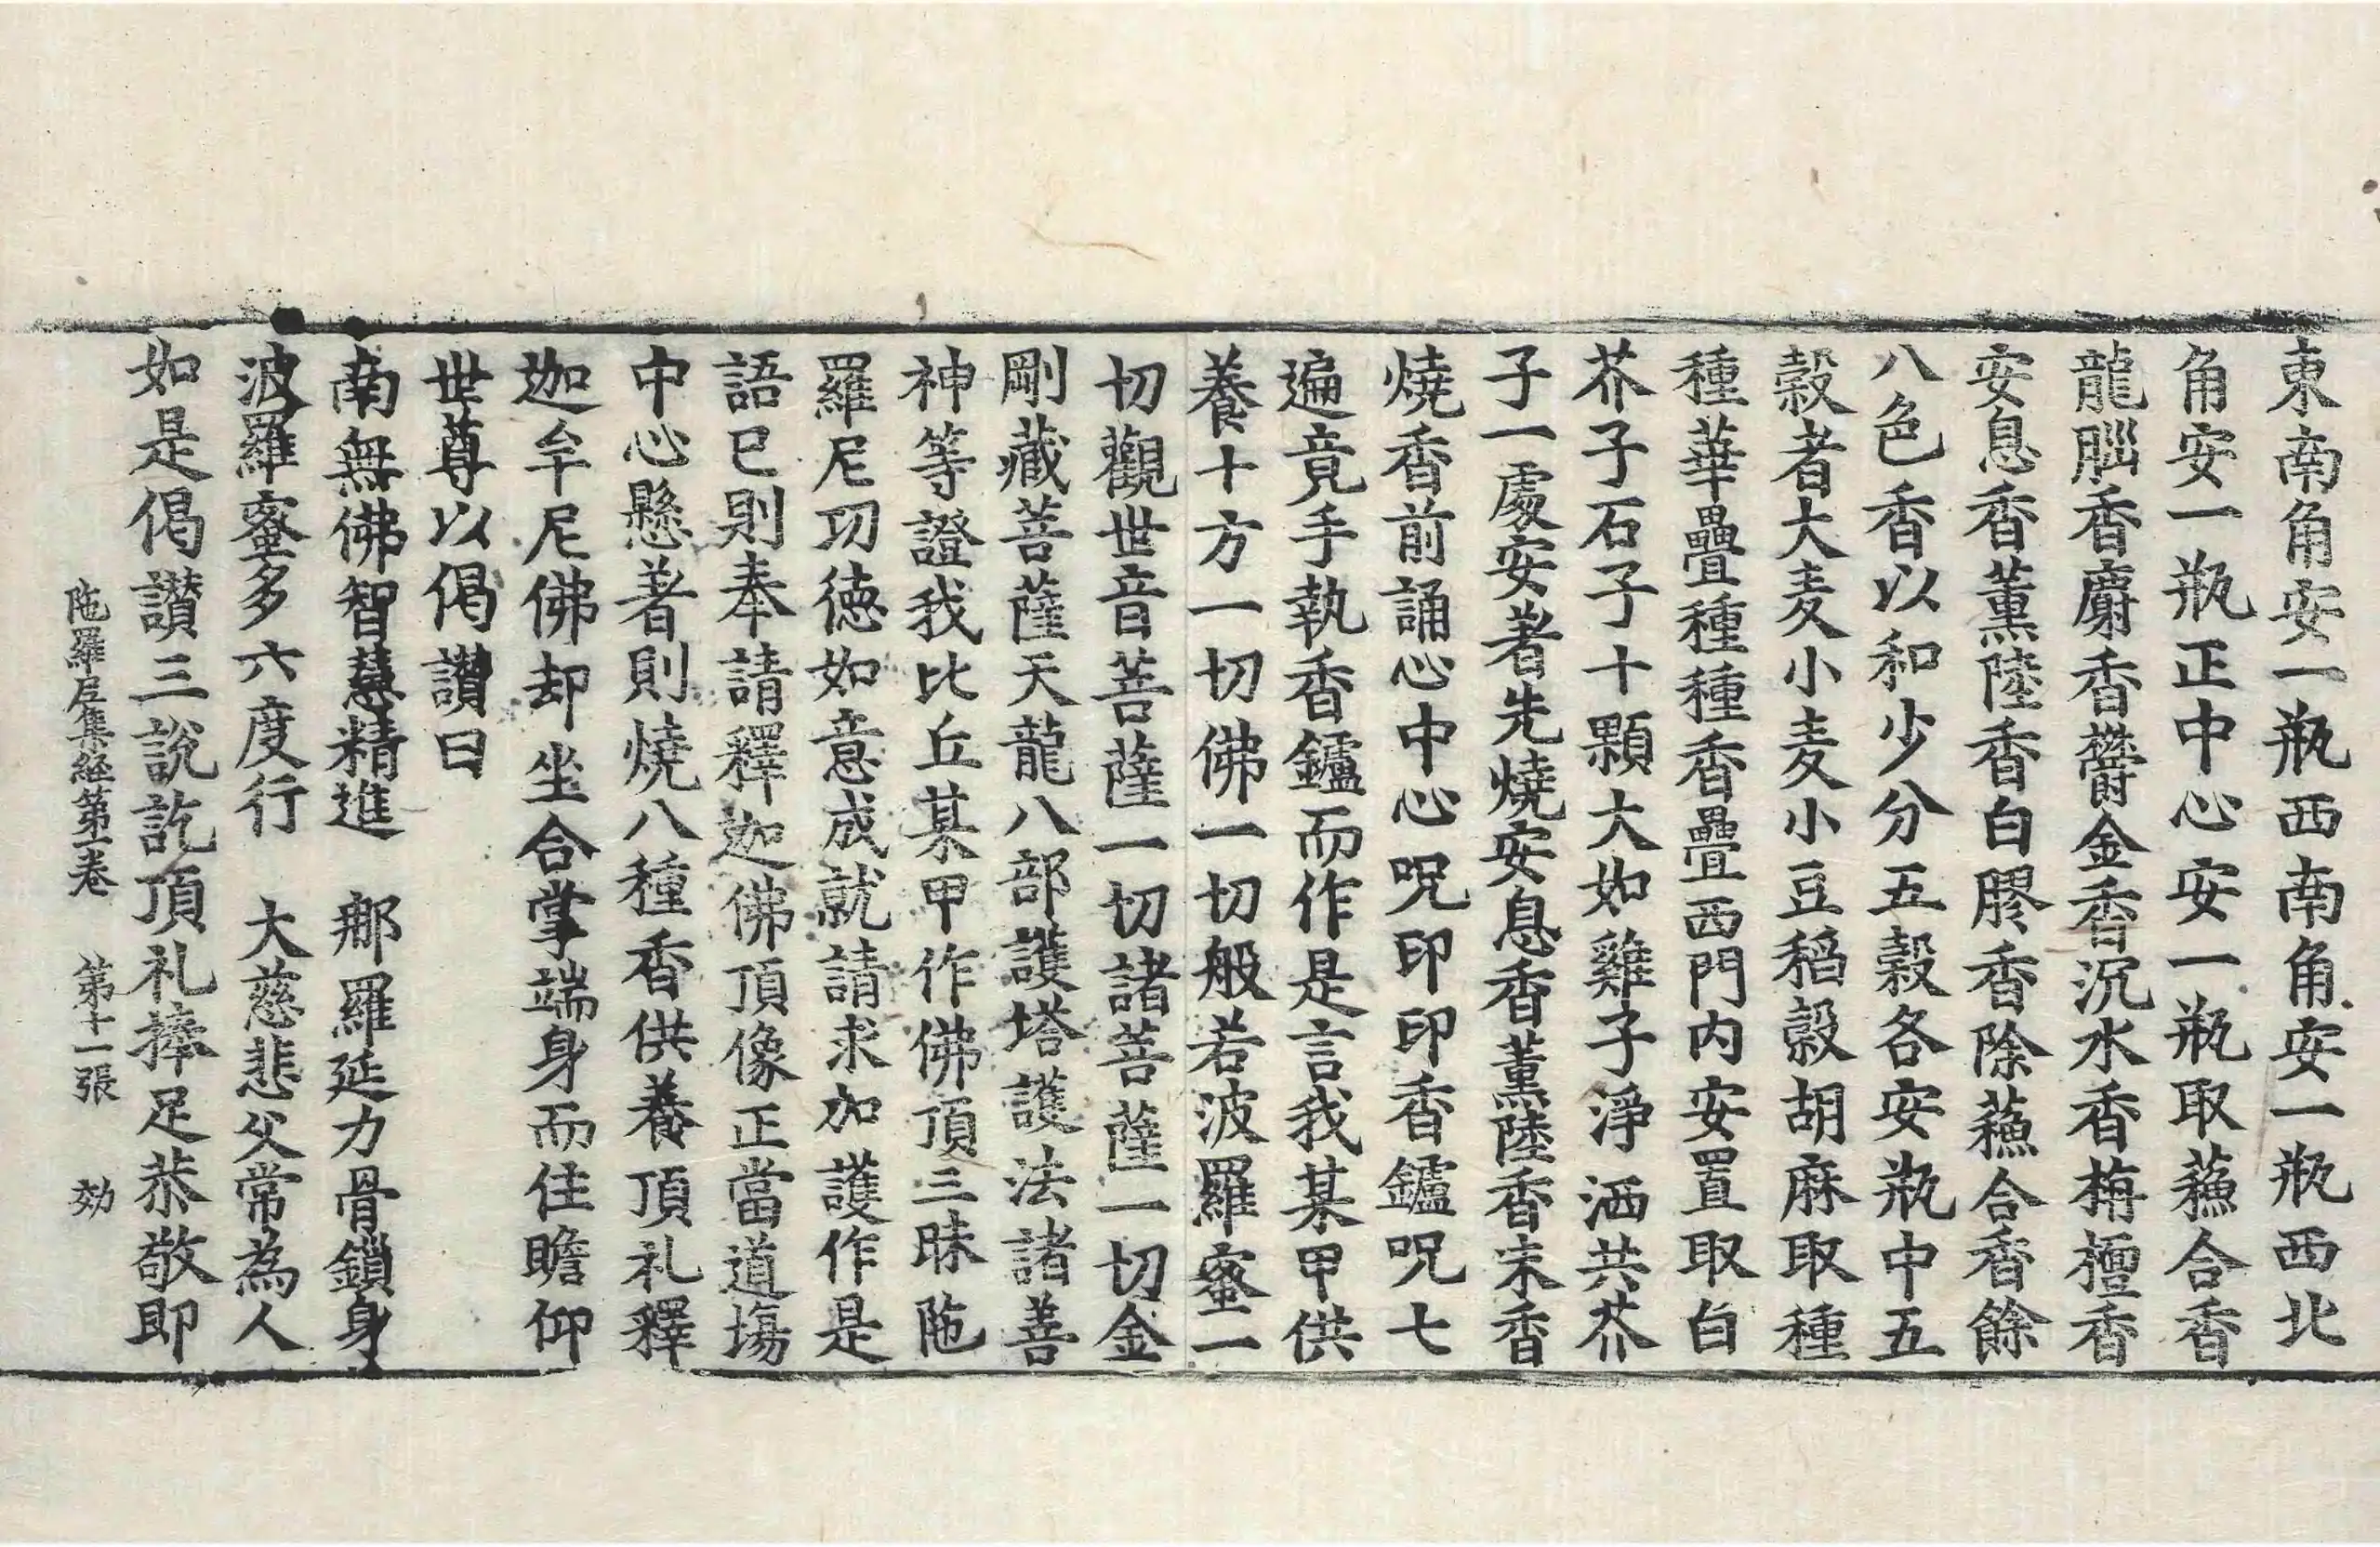 東南角安一瓶西南角安一瓶西北
角安一瓶正中心安一瓶取蘓合香
龍腦香麝香欝金香沉水香栴檀香
安息香薰陸香白膠香除蘓合香餘
八色香以和少分五穀各安瓶中五
穀者大麦小麦小豆稻穀胡麻取種
種華疊種種香疊西門内安置取白
芥子石子十顆大如雞子淨洒共芥
子一處安著先燒安息香薰陸香末香
燒香前誦心中心呪印印香鑪呪七
遍竟手執香鑪而作是言我某甲供
養十方一切佛一切般若波羅蜜一
切觀世音菩薩一切諸菩薩一切金
剛藏菩薩天龍八部護塔護法諸善
神等證我比丘某甲作佛頂三昧陁
羅尼功德如意成就請求加護作是
語已則奉請釋迦佛頂像正當道場
中心懸著則燒八種香供養頂礼釋
迦牟尼佛却坐合掌端身而住瞻仰
世尊以偈讃曰
南無佛智慧精進　𨚗羅延力骨鎖身
波羅蜜多六度行　大慈悲父常為人
如是偈讃三說訖頂礼捧足恭敬即
陁羅尼集経第一卷　第十一張　効